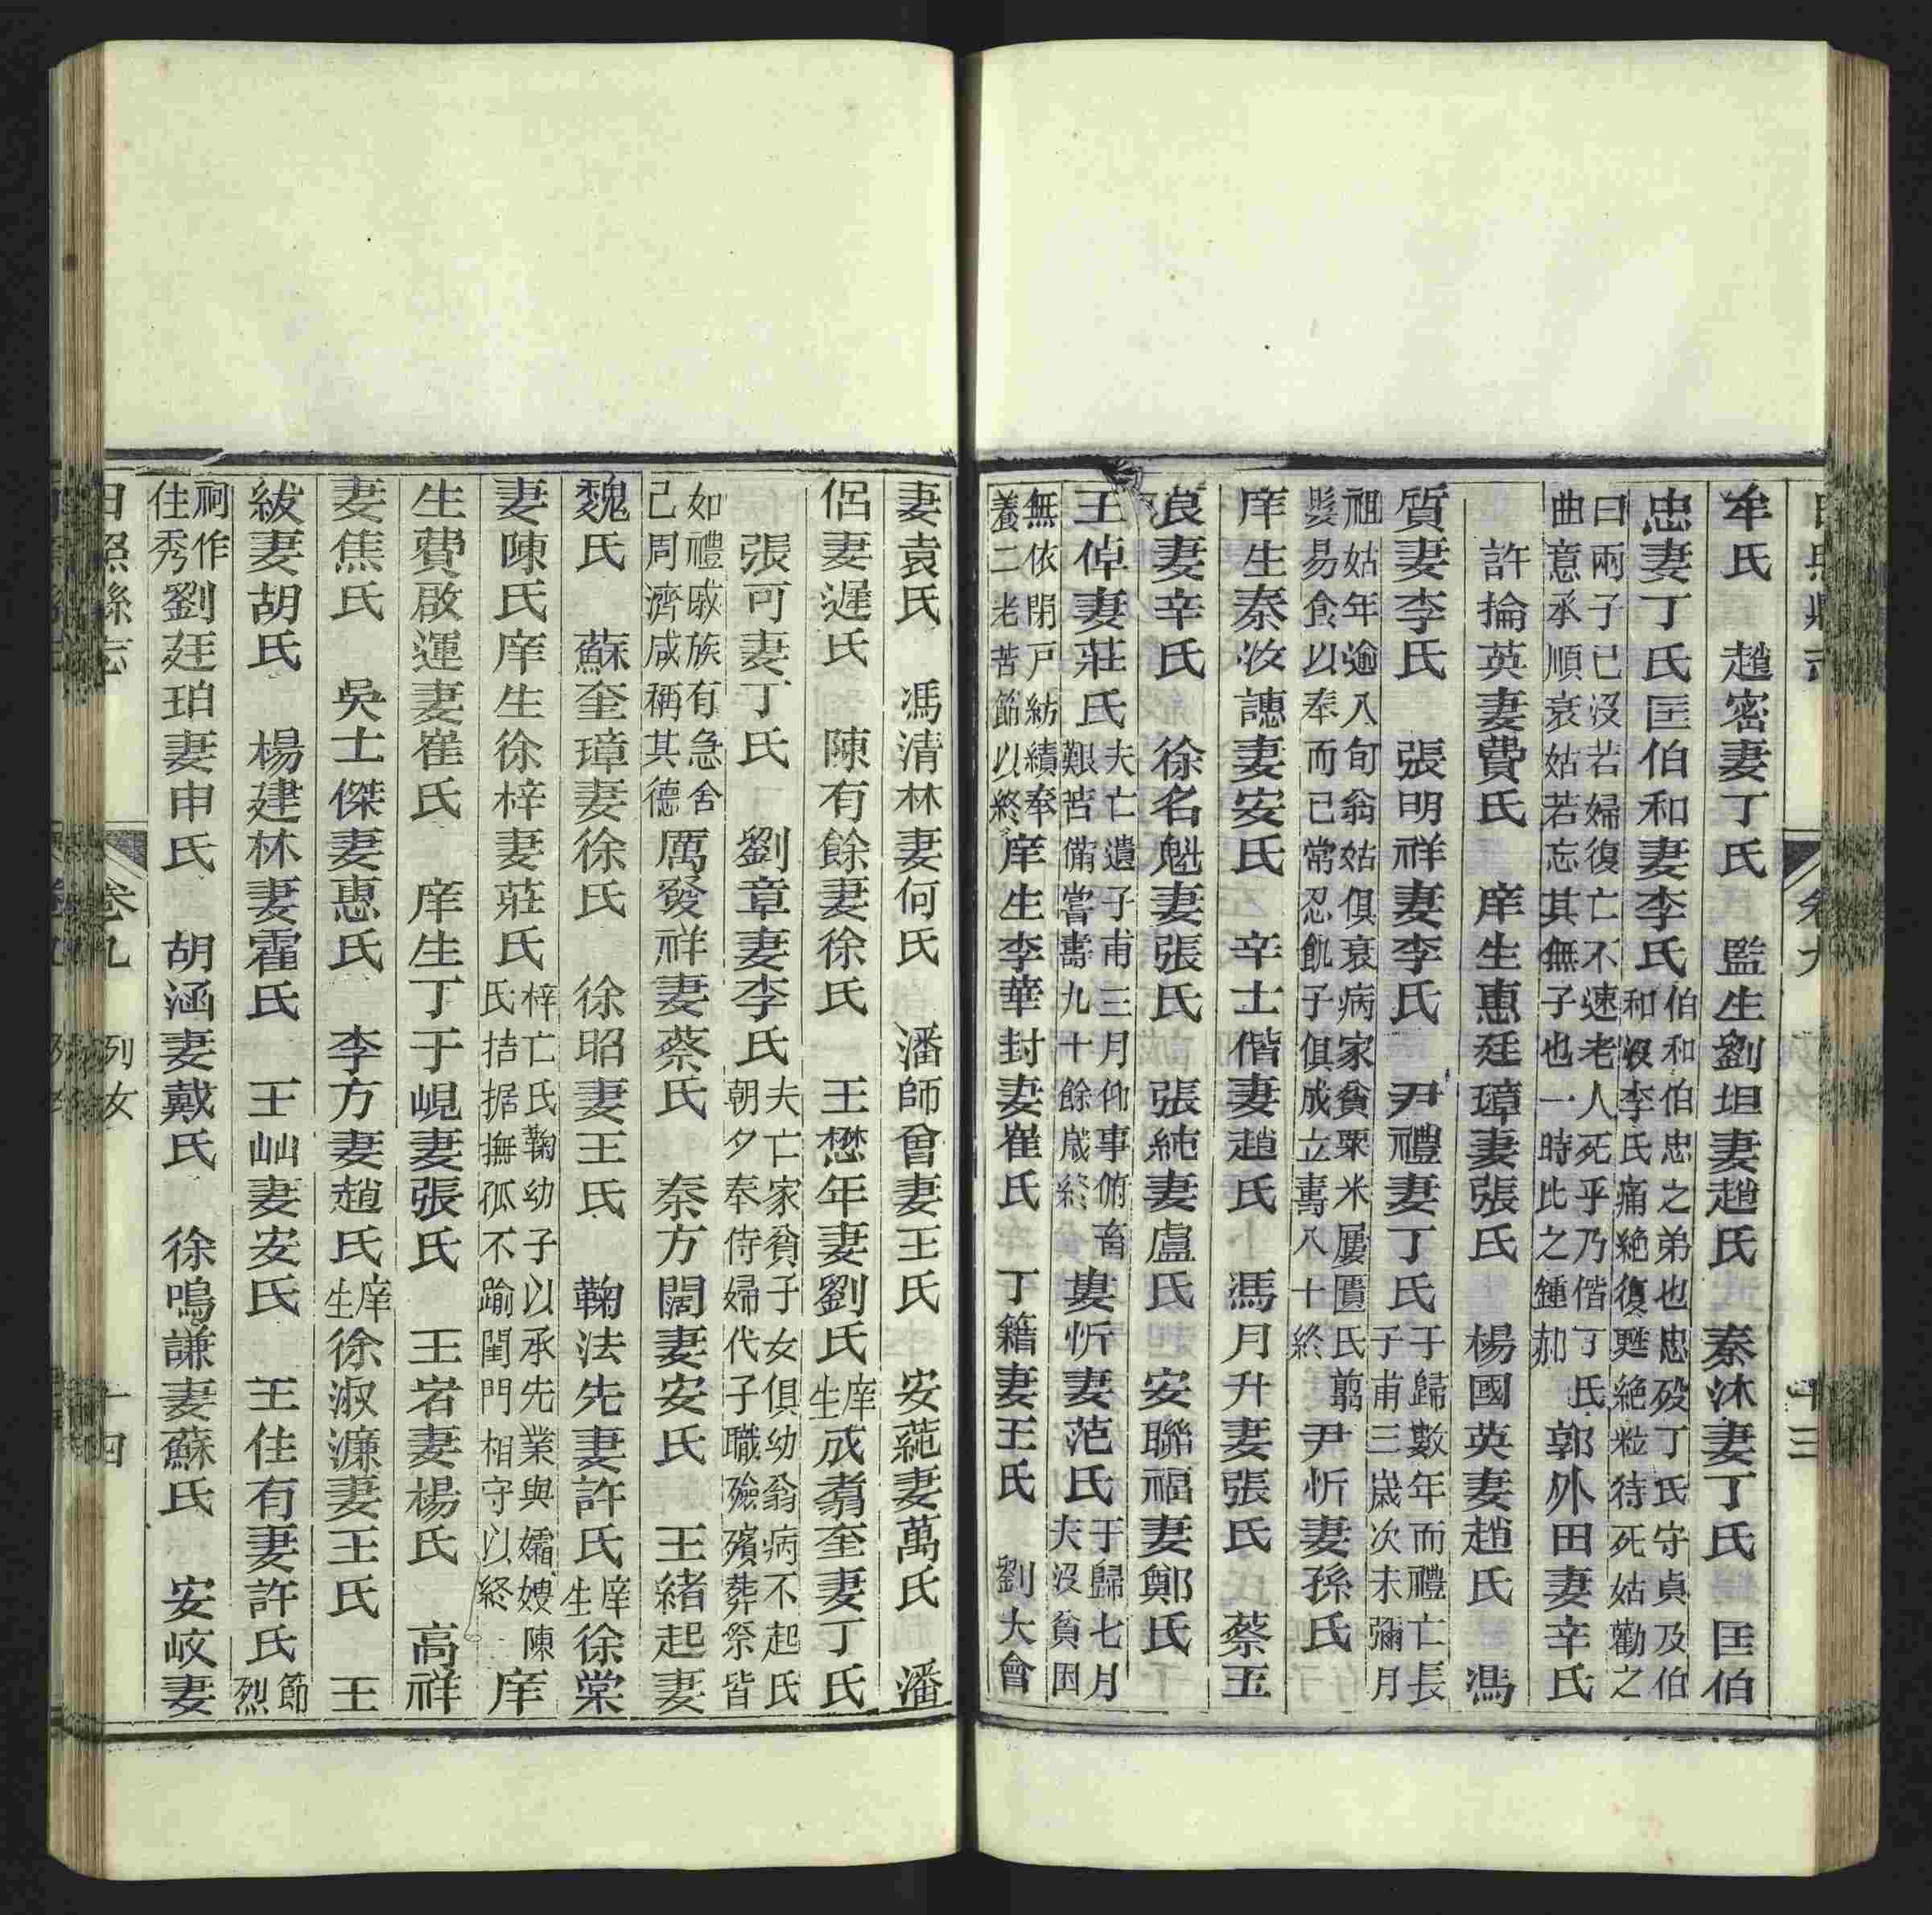 牟氏　趙密妻丁氏　監生劉坦妻趙氏　秦沐妻丁氏　匡伯
忠妻丁氏匡伯和妻李氏伯和伯忠之弟也忠歿丁氏守貞及伯和沒李氏痛絶復甦絶粒待死姑勸之
曰兩子已沒若婦復亡不速老人死乎乃偕丁氏曲意承順衰姑若忘其無子也一時比之鍾郝　郭外田妻辛氏
許掄英妻費氏　庠生惠廷璋妻張氏　楊國英妻趙氏　馮
質妻李氏　張明祥妻李氏　尹禮妻丁氏于歸數年而禮亡長子甫三歲次未彌月
祖姑年逾八旬翁姑俱衰病家貧粟米屢匱氏翦髮易食以奉而已常忍飢子俱成立壽八十終　尹忻妻孫氏
庠生秦汝譓妻安氏　辛士偕妻趙氏　馮月升妻張氏　蔡玉
浪妻辛氏　徐名魁妻張氏　張純妻盧氏　安聯福妻鄭氏
王倬妻莊氏夫亡遺子甫三月仰事俯畜艱苦備嘗壽九十餘歲終　婁忻妻范氏于歸七月夫沒貧困
無依閉戶紡績奉養二老苦節以終　庠生李華封妻崔氏　丁籍妻王氏　劉大會
妻袁氏　馮清林妻何氏　潘師曾妻王氏　安蓏妻萬氏　潘
侶妻遲氏　陳有餘妻徐氏　王懋年妻劉氏　庠生成翥奎妻丁氏
張可妻丁氏　劉章妻李氏夫亡家貧子女俱幼翁病不起氏朝夕奉侍婦代子職殮殯葬祭皆
如禮戚族有急舍己周濟咸稱其德　厲發祥妻蔡氏　秦方闊妻安氏　王緒起妻
魏氏　蘇奎璋妻徐氏　徐昭妻王氏　鞠法先妻許氏　庠生徐棠
妻陳氏庠生徐梓妻莊氏梓亡氏鞠幼子以承先業與孀嫂陳氏拮据撫孤不踰閨門相守以終　庠
生費啟運妻崔氏　庠生丁于峴妻張氏　王宕妻楊氏　高祥
妻焦氏　吳士傑妻惠氏　李方妻趙氏　庠生徐淑濂妻王氏　王
紱妻胡氏　楊建林妻霍氏　王屾妻安氏　王佳有妻許氏節烈
祠作住秀　劉廷珀妻申氏　胡涵妻戴氏　徐鳴謙妻蘇氏　安岐妻
日照縣志　卷九　列女　十四